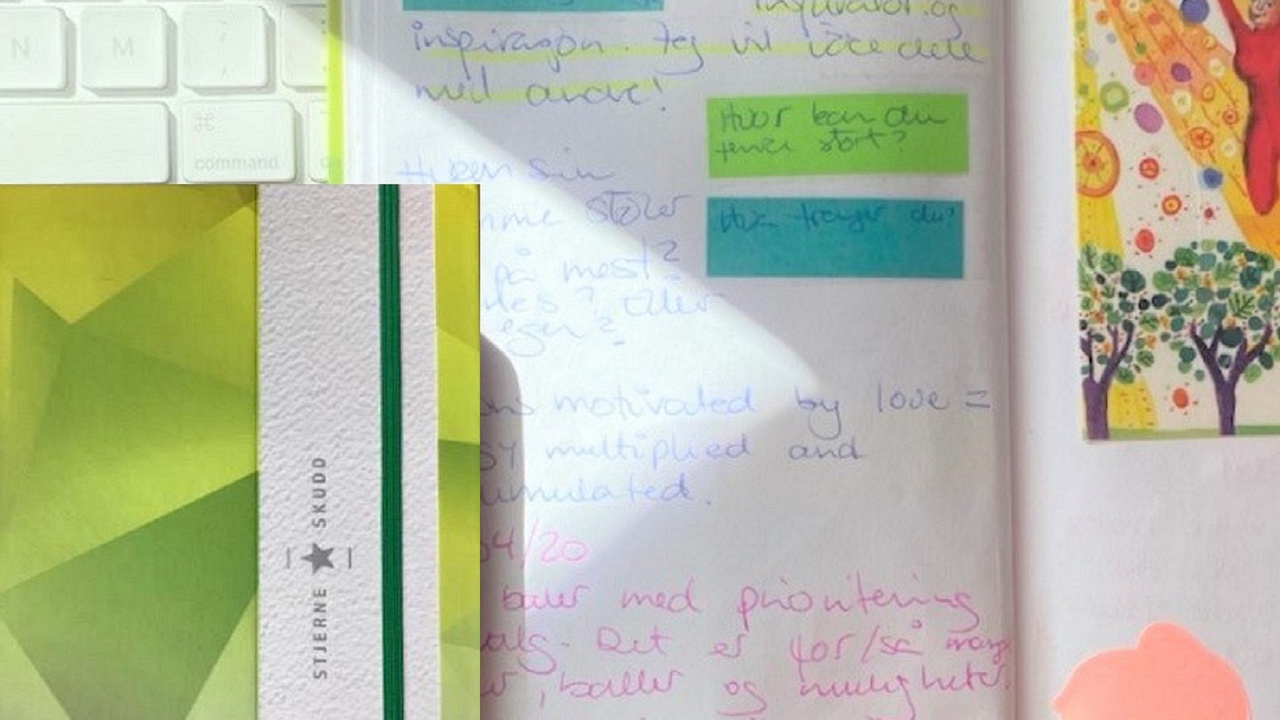 N
M
⌘
command
inspirasjon. Jeg vil ikke dele
med andre!
Hvor kan du
tenke stort?
Hva trenger du?
Hvem sin
stoler
på mest?
Eller
egen?
motivated by love =
multiplied and
04/20
baler med prioritering
valg. Det er for/så mange
, baller og muligheter.
STJERNE ★ SKUDD